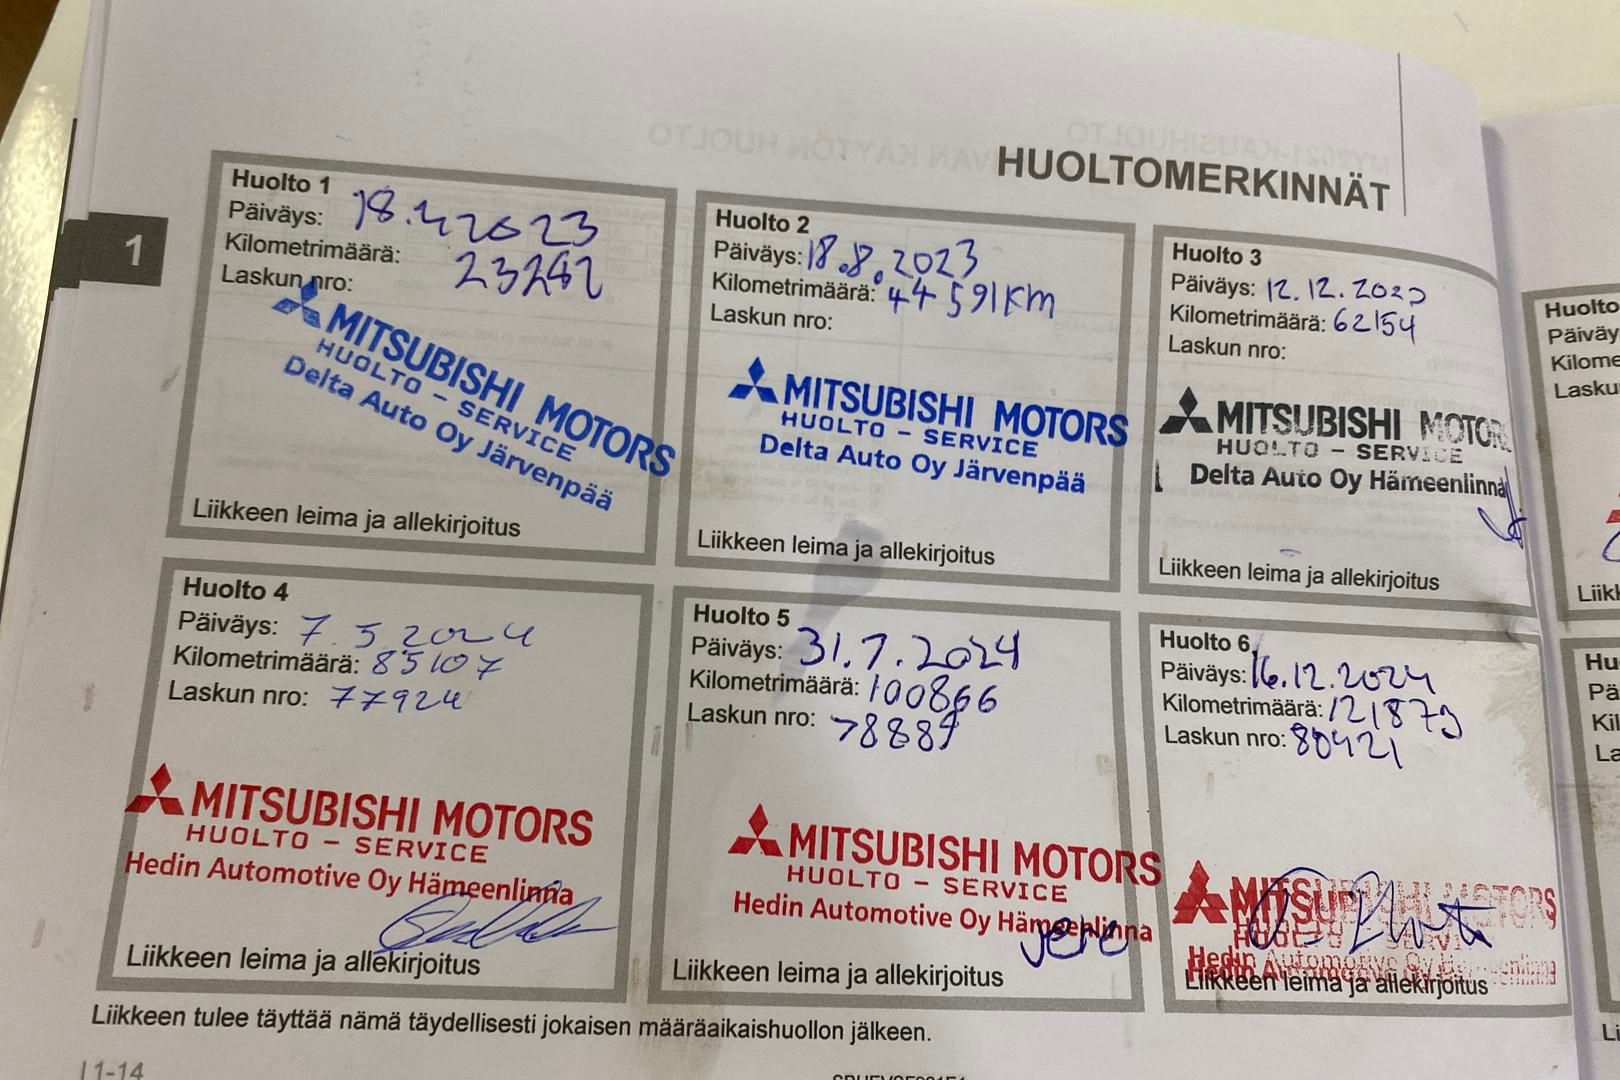 HUOLTOMERKINNÄT
1
Huolto 1
Päiväys: 18.4.2023
Kilometrimäärä: 23262
Laskun nro:
MITSUBISHI MOTORS
HUOLTO - SERVICE
Delta Auto Oy Järvenpää
Liikkeen leima ja allekirjoitus
Huolto 2
Päiväys: 18.8.2023
Kilometrimäärä: 44591 KM
Laskun nro:
MITSUBISHI MOTORS
HUOLTO - SERVICE
Delta Auto Oy Järvenpää
Liikkeen leima ja allekirjoitus
Huolto 3
Päiväys: 12.12.2023
Kilometrimäärä: 62154
Laskun nro:
MITSUBISHI MOTOR
HUOLTO - SERVICE
Delta Auto Oy Hämeenlinna
Liikkeen leima ja allekirjoitus
Huolto 4
Päiväys: 7.5.2024
Kilometrimäärä: 85107
Laskun nro: 77924
MITSUBISHI MOTORS
HUOLTO - SERVICE
Hedin Automotive Oy Hämeenlinna
Liikkeen leima ja allekirjoitus
Huolto 5
Päiväys: 31.7.2024
Kilometrimäärä: 100866
Laskun nro: 78889
MITSUBISHI MOTORS
HUOLTO - SERVICE
Hedin Automotive Oy Hämeenlinna
Jere
Liikkeen leima ja allekirjoitus
Huolto 6
Päiväys: 16.12.2024
Kilometrimäärä: 121879
Laskun nro: 80421
MITSUBISHI MOTORS
HUOLTO - SERVICE
Hedin Automotive Oy Hämeenlinna
Liikkeen leima ja allekirjoitus
Huolto
Päiväy
Kilome
Lasku
Liik
Hu
Pä
Kil
La
Li
Liikkeen tulee täyttää nämä täydellisesti jokaisen määräaikaishuollon jälkeen.
1-14